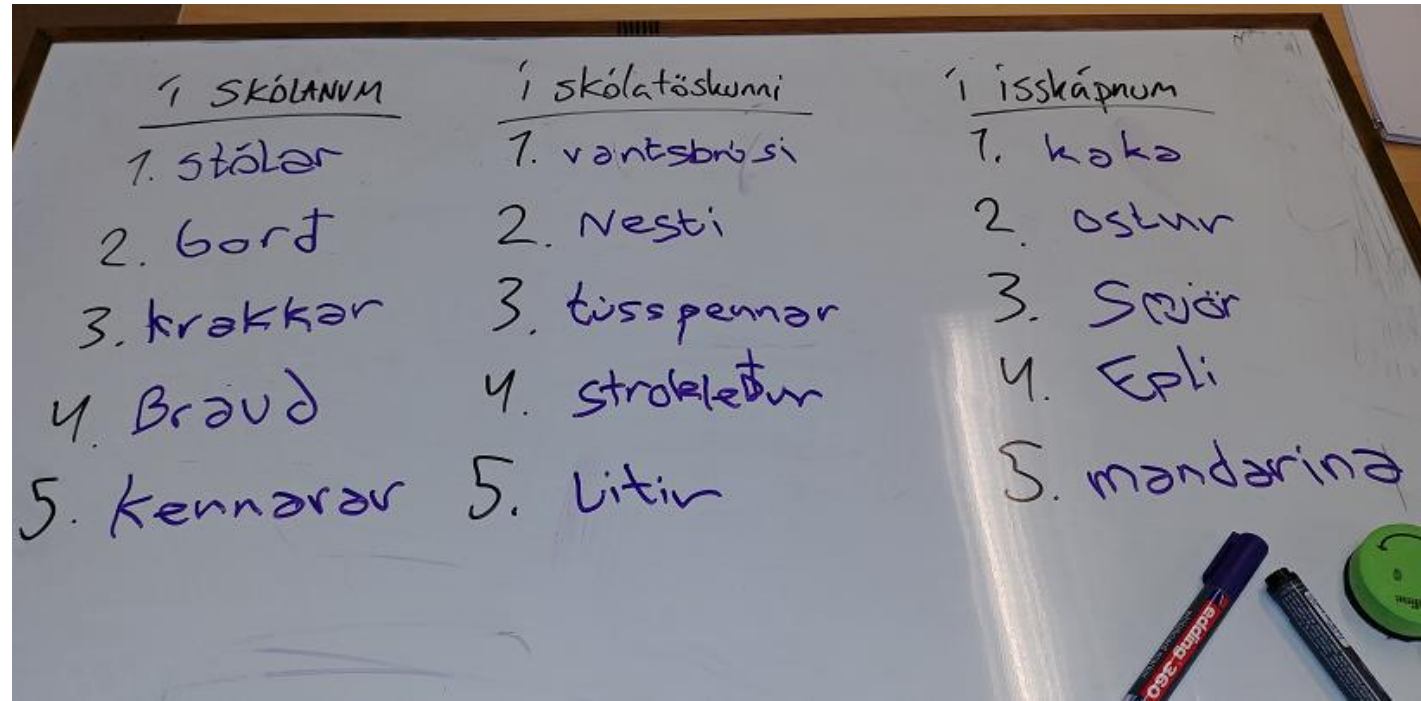 Í SKÓLANUM
1. stólar
2. borð
3. krakkar
4. Brauð
5. kennarar
í skólatöskunni
1. vantsbrúsi
2. Nesti
3. túss pennar
4. strokleður
5. Litir
í ísskápnum
1. kaka
2. ostur
3. Smjör
4. Epli
5. mandarina
edding 360